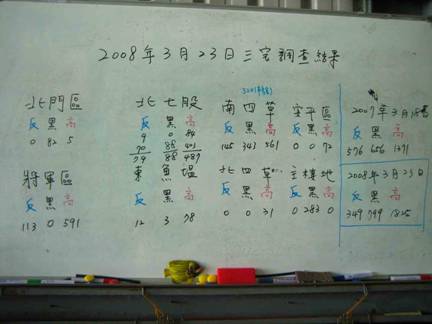 2008年3月23日三宝調查結果
北門區
反 黑 高
0 82 5
將軍區
反 黑 高
113 0 591
北七股
反 黑 高
9 0 84
70 88 403
79 88 487
東魚塭
反 黑 高
12 3 78
南四草
反 黑 高
145 343 561
北四草
反 黑 高
0 0 31
安平區
反 黑 高
0 0 72
主棲地
反 黑 高
0 283 0
2007年3月
反 黑 高
576 656 1271
2008年3月23日
反 黑 高
349 799 1825